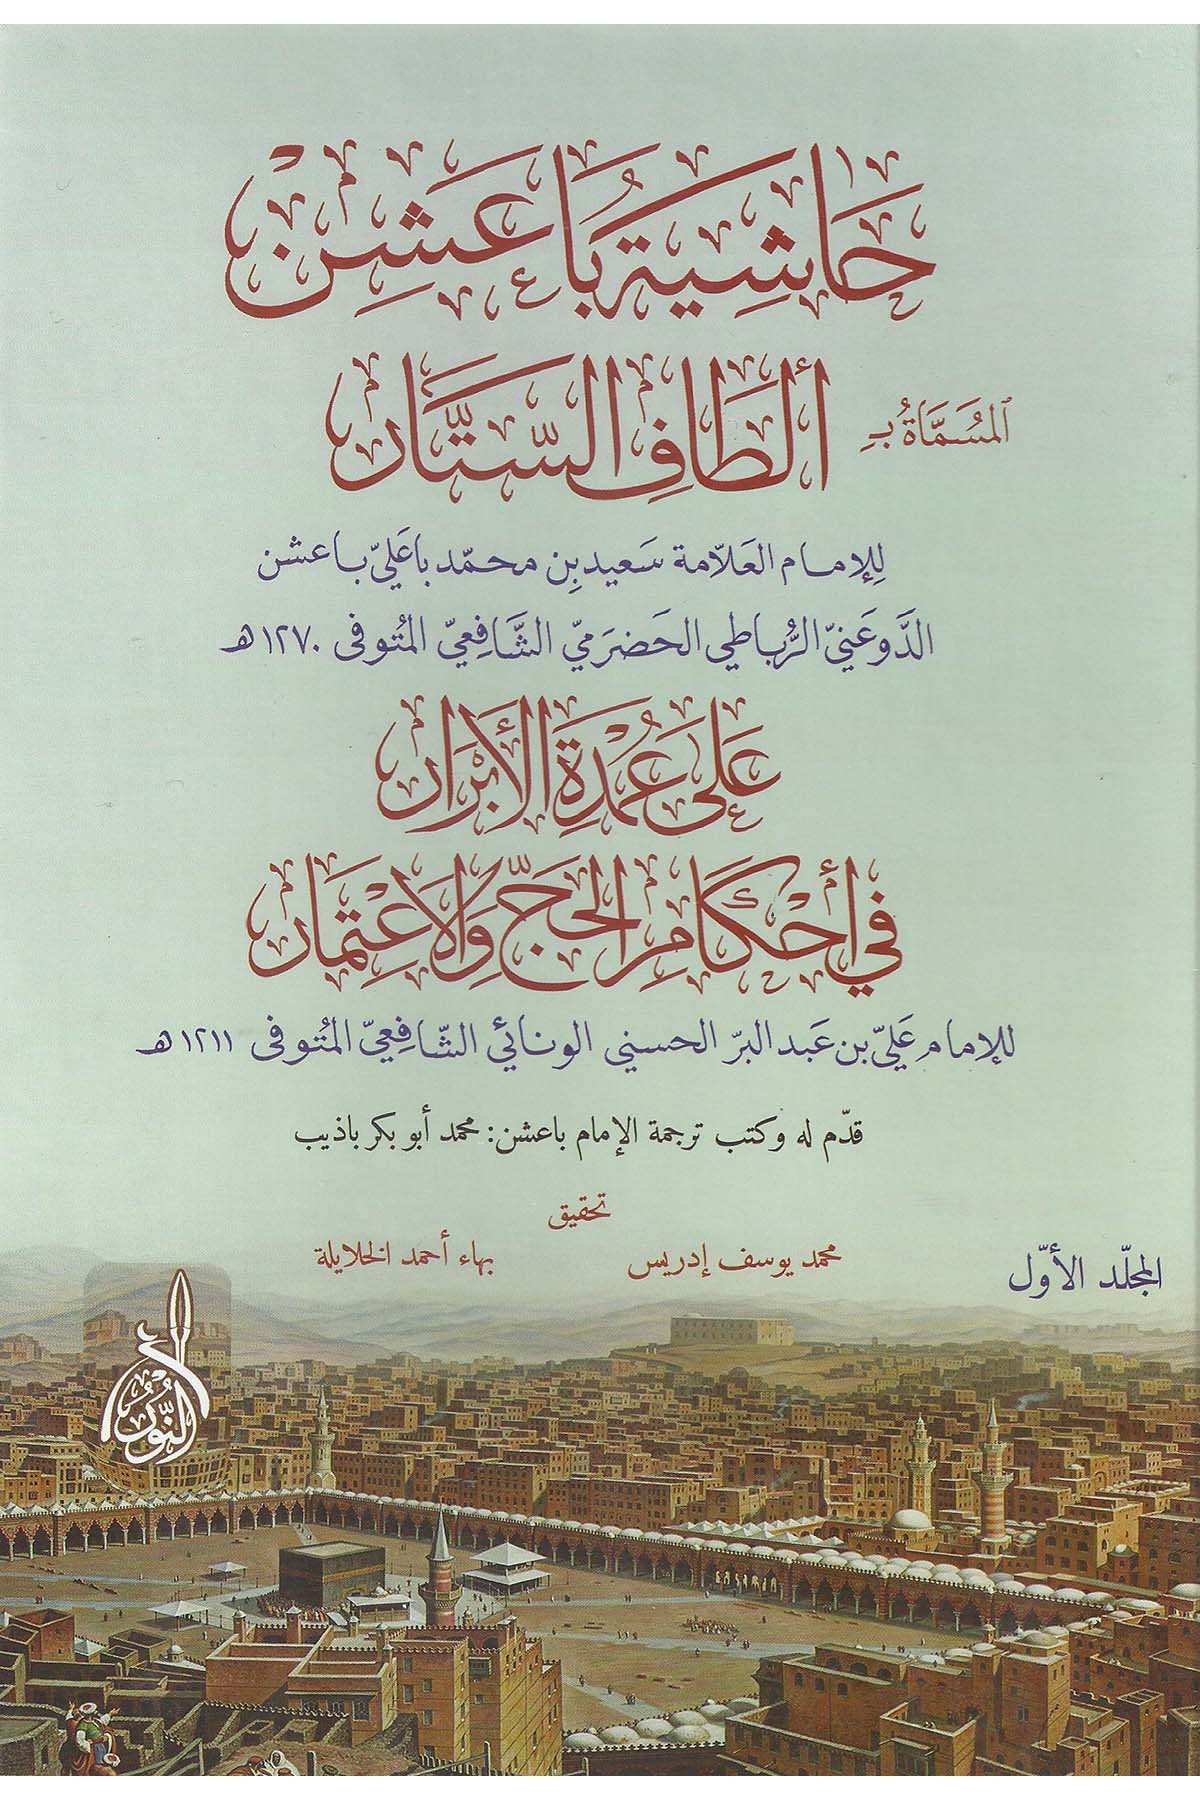 حَاشِيَة بَاعَشِن
المُسَمَّاةُ بـِ أَلطَافِ السِّتَّار
لِلإمام العَلّامة سَعيد بِن محمّد باعَليّ باعشن
الدَّوعَنيّ الرُّباطي الحَضرَميّ الشَّافِعيّ المتُوفى ١٢٧٠هـ
عَلى عُمْدَةِ الأَبْرَار
في أَحْكَامِ الحَجّ وَالاعْتِمَار
للإمام عَليّ بن عَبد البرّ الحسني الونائي الشَّافِعيّ المتُوفى ١٢١١هـ
قدّم له وكتب ترجمة الإمام باعشن: محمد أبو بكر باذيب
تحقيق
محمد يوسف إدريس بهاء أحمد الخلايلة
المجلّد الأوّل
النُّور